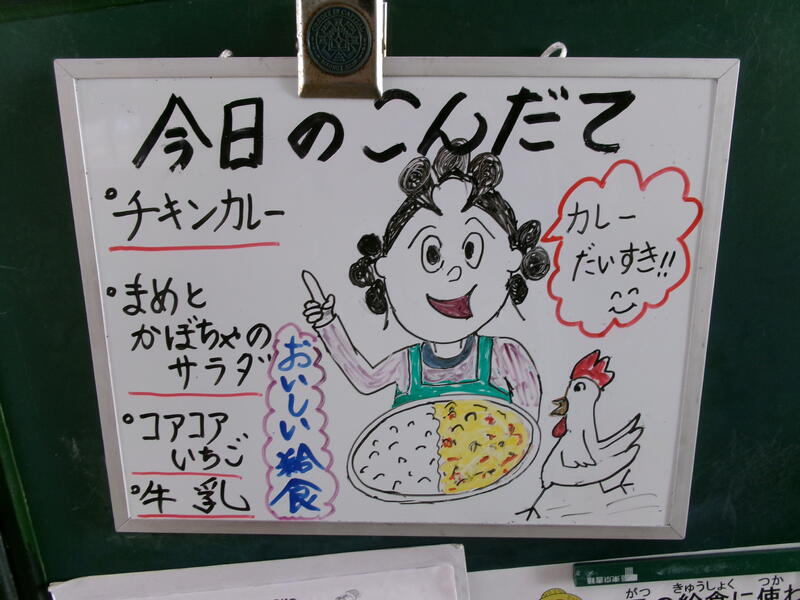 今日のこんだて
チキンカレー
まめと
かぼちゃの
サラダ
コアコア
いちご
牛乳
おいしい給食
カレー
だいすき!!
がつ きゅうしょく つか
の給食に使わ
東京書籍